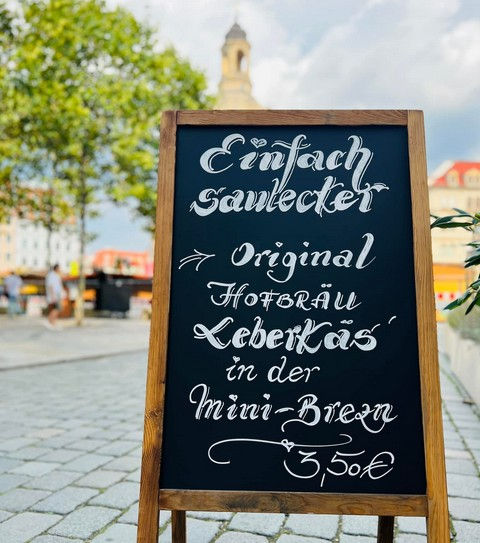 Einfach
saulecker
Original
HOFBRÄU
Leberkäs'
in der
Mini-Brezn
3,50€